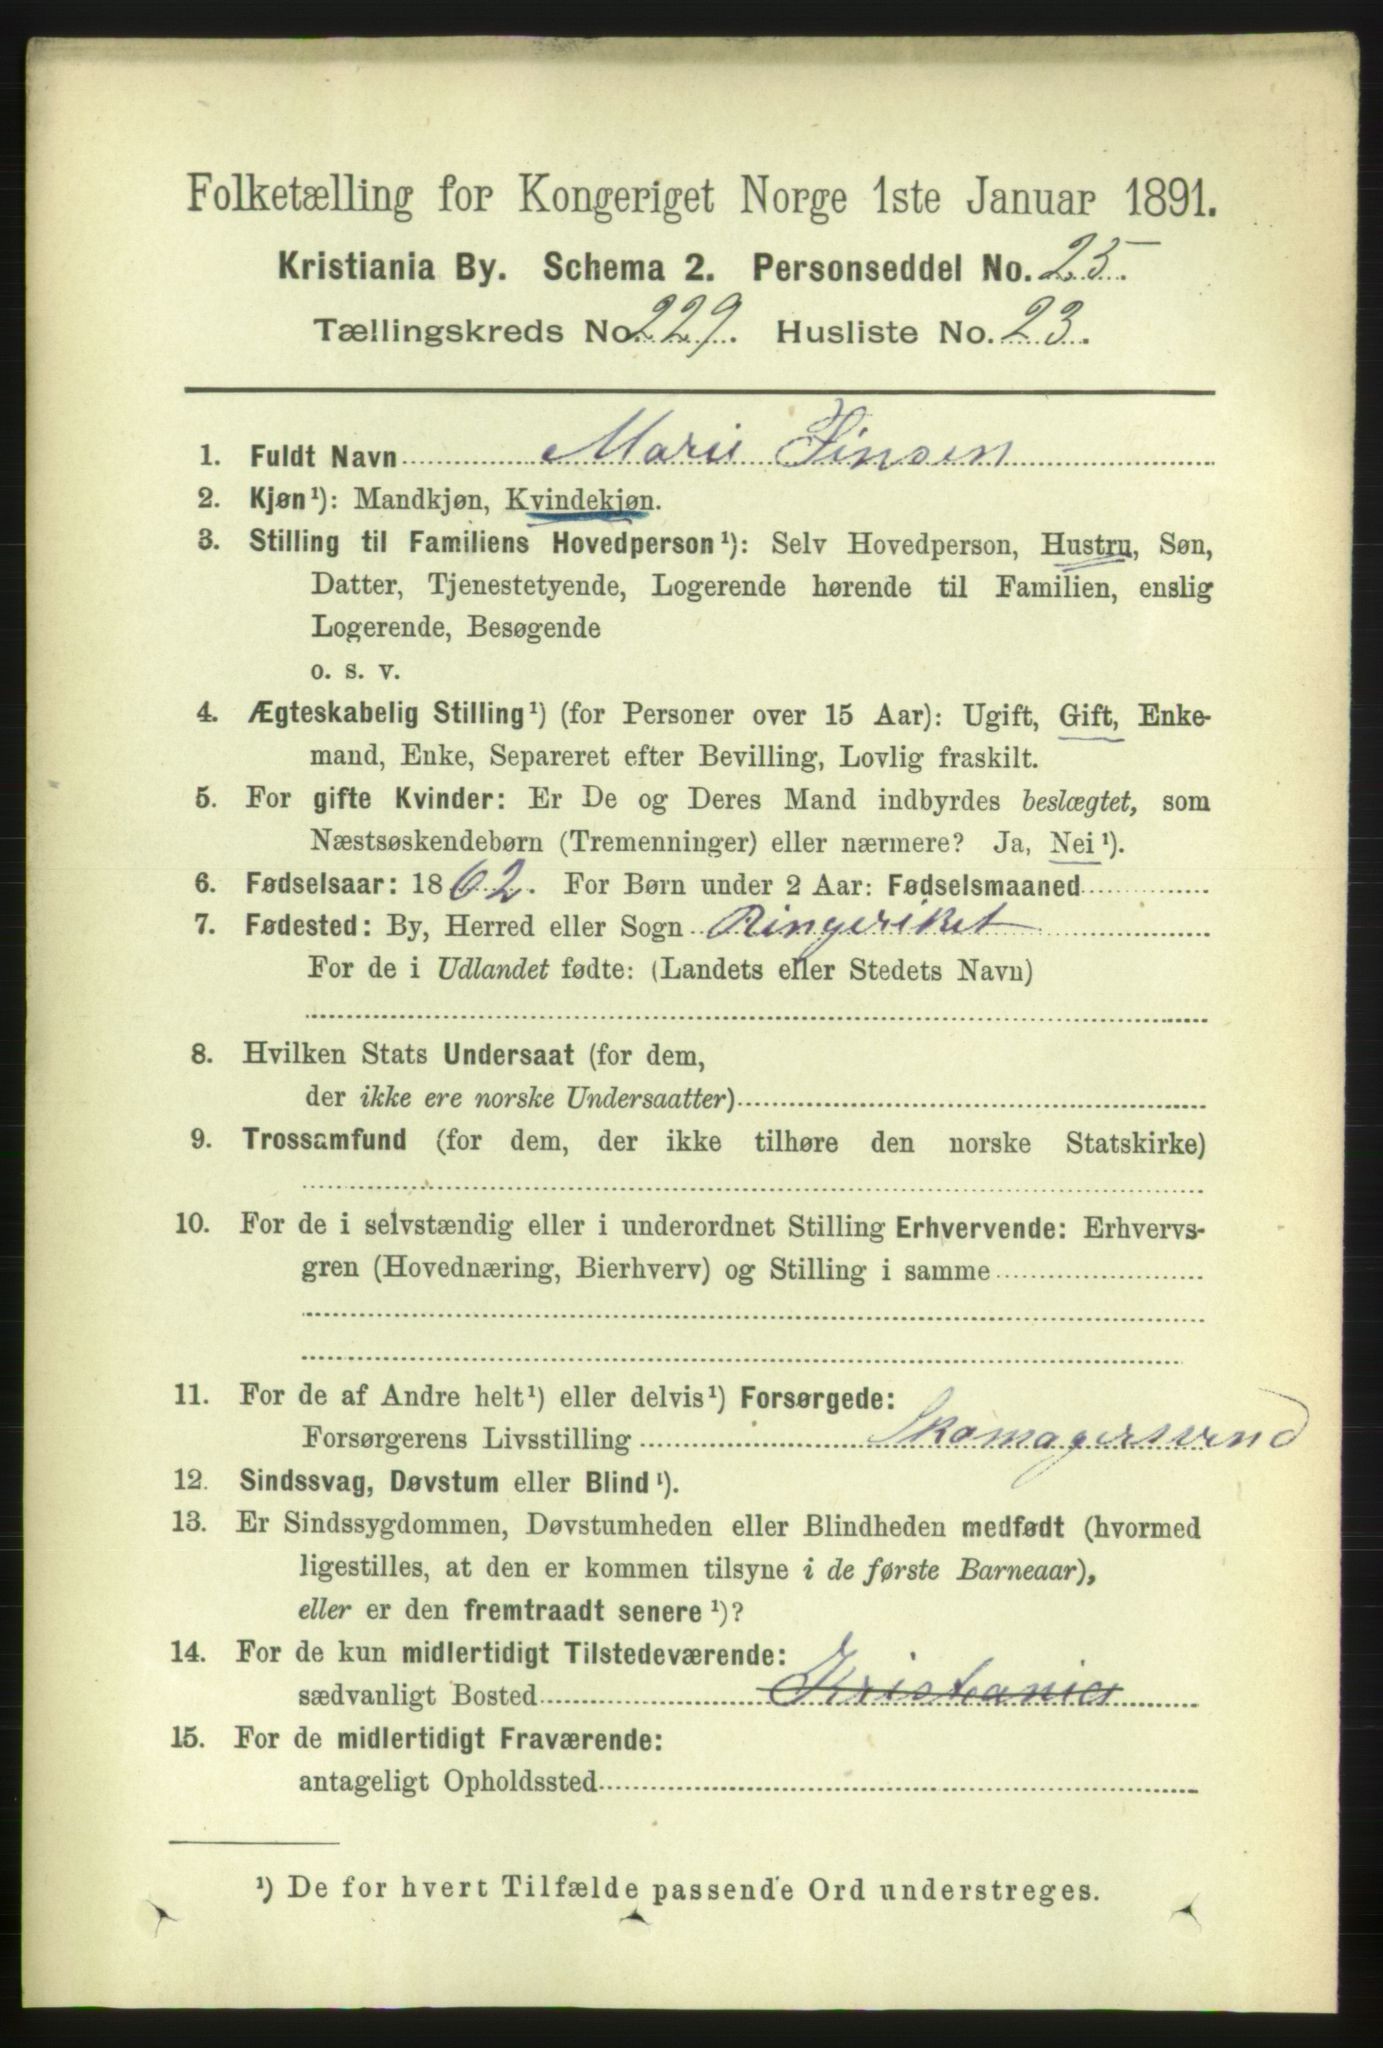 Folketælling for Kongeriget Norge 1ste Januar 1891.
Kristiania By. Schema 2. Personseddel No. 25.
Tællingskreds No. 229. Husliste No. 23.
1. Fuldt Navn Marie Jinsen
2. Kjøn¹): Mandkjøn, Kvindekjøn.
3. Stilling til Familiens Hovedperson¹): Selv Hovedperson, Hustru, Søn,
Datter, Tjenestetyende, Logerende hørende til Familien, enslig
Logerende, Besøgende
o. s. v.
4. Ægteskabelig Stilling¹) (for Personer over 15 Aar): Ugift, Gift, Enke-
mand, Enke, Separeret efter Bevilling, Lovlig fraskilt.
5. For gifte Kvinder: Er De og Deres Mand indbyrdes beslægtet, som
Næstsøskendebørn (Tremenninger) eller nærmere? Ja, Nei¹).
6. Fødselsaar: 1862. For Børn under 2 Aar: Fødselsmaaned
7. Fødested: By, Herred eller Sogn Ringeriket
For de i Udlandet fødte: (Landets eller Stedets Navn)
8. Hvilken Stats Undersaat (for dem,
der ikke ere norske Undersaatter)
9. Trossamfund (for dem, der ikke tilhøre den norske Statskirke)
10. For de i selvstændig eller i underordnet Stilling Erhvervende: Erhvervs-
gren (Hovednæring, Bierhverv) og Stilling i samme
11. For de af Andre helt¹) eller delvis¹) Forsørgede:
Forsørgerens Livsstilling Skomagersvend
12. Sindssvag, Døvstum eller Blind¹).
13. Er Sindssygdommen, Døvstumheden eller Blindheden medfødt (hvormed
ligestilles, at den er kommen tilsyne i de første Barneaar),
eller er den fremtraadt senere¹)?
14. For de kun midlertidigt Tilstedeværende:
sædvanligt Bosted Kristiania
15. For de midlertidigt Fraværende:
antageligt Opholdssted
¹) De for hvert Tilfælde passende Ord understreges.